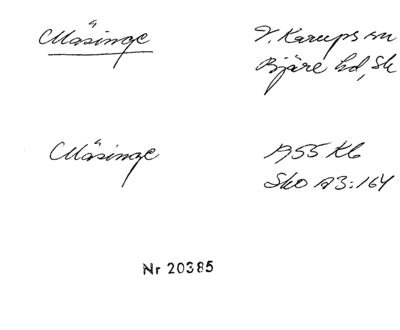 Måsinge
V. Karups sn
Bjäre hd, Sk
Måsinge
1955 Kb
Sko A3:164
Nr 20385